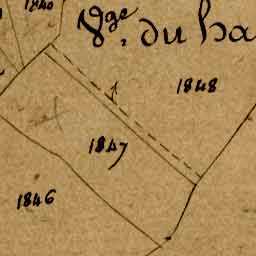 1840
Vge. du ha
1848
1847
1846